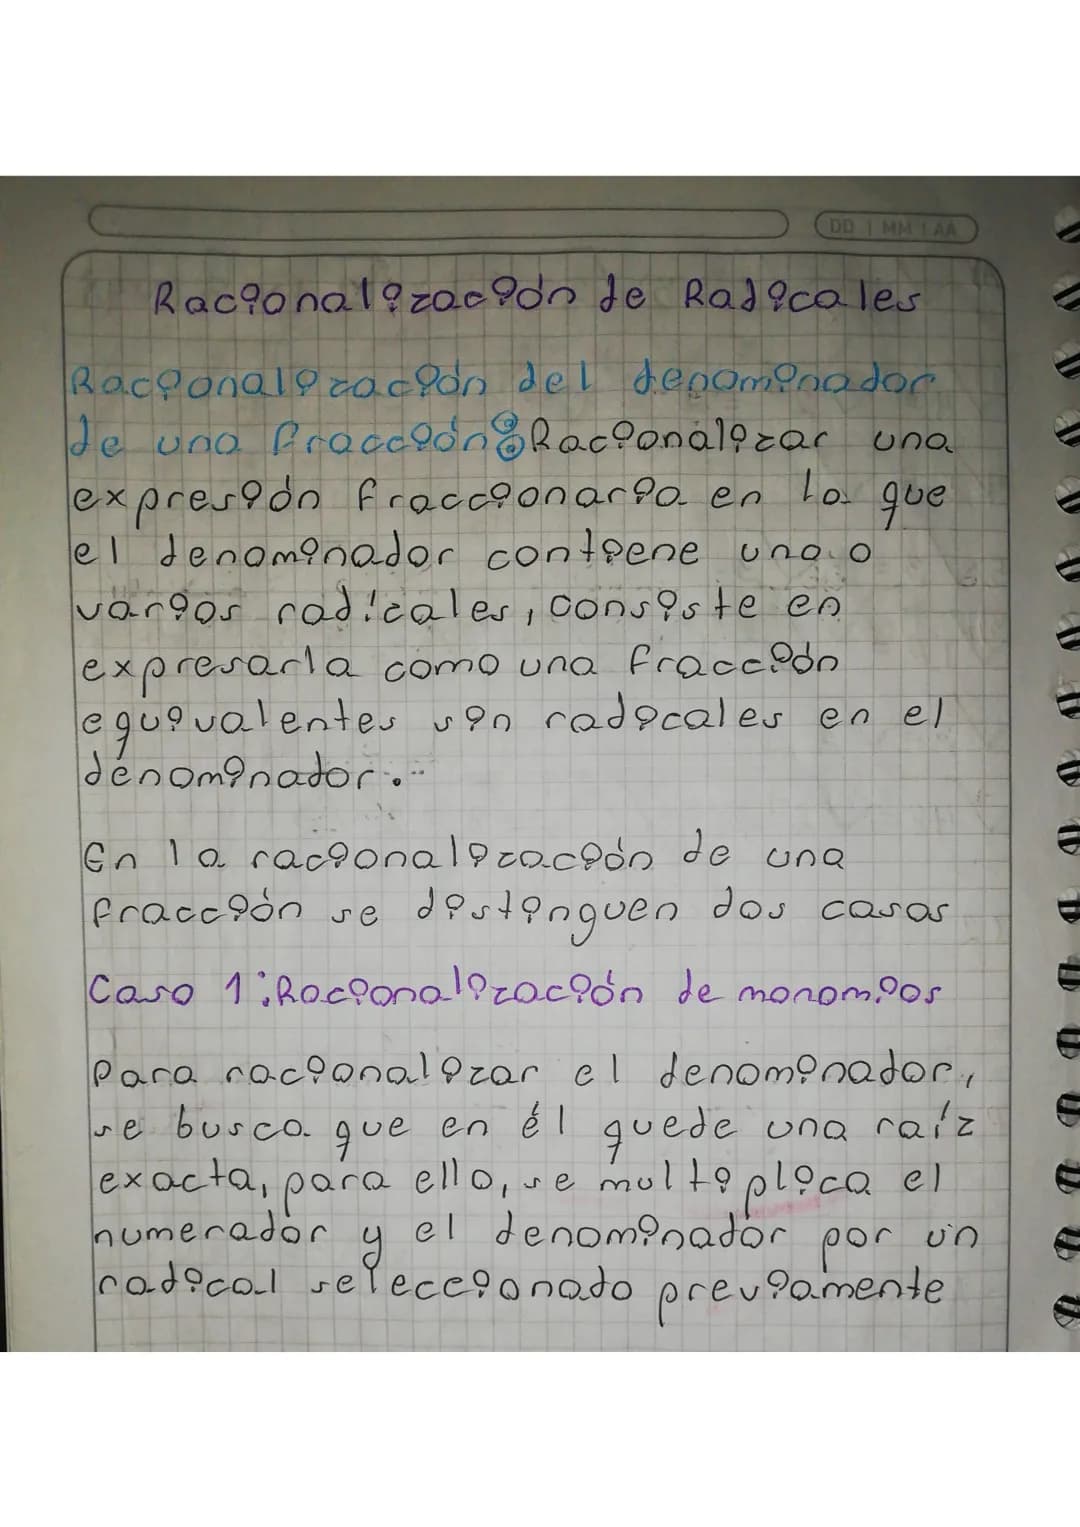 DD | MM | AA
Racionalización de Radicales
Racionalización del denominador
de una fracción: Racionalizar una
expresión fraccionaria en la que
el denominador contiene uno o
varios radicales, consiste en
expresarla como una fracción
equivalentes sin radicales en el
denominador.
En la racionalización de una
fracción se distinguen dos casos
Caso 1: Racionalización de monomios
Para racionalizar el denominador,
se busca que en él quede una raíz
exacta, para ello, se multiplica el
numerador y el denominador por un
radical seleccionado previamente